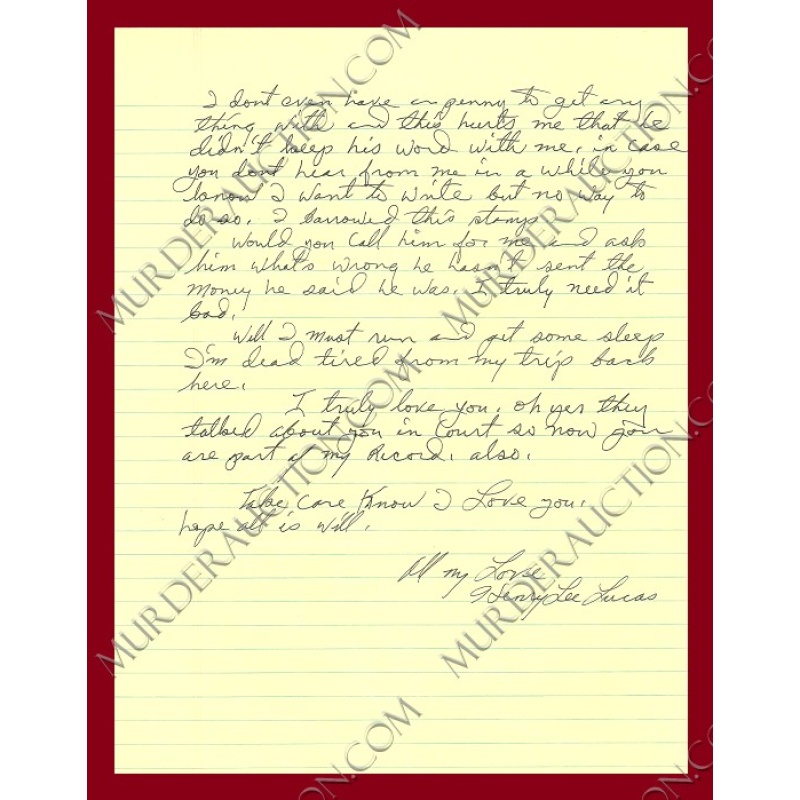 I dont even have an penny to get any
thing with and this hurts me that he
didn't keep his word with me, in case
you dont hear from me in a while you
know I want to write but no way to
do so. I barrowed this stamp
Would you call him for me and ask
him what's wrong he hasn't sent the
money he said he was. I truly need it
bad.
Will I must run and get some sleep
I'm dead tired from my trip back
here.
I truly love you. oh yes they
talked about you in Court so now your
are part of my Record. also.
Take care Know I Love you.
hope all is will.
All my Love
Henry Lee Lucas
MURDERAUCTION.COM
MURDERAUCTION.COM
MURDERAUCTION.COM
MURDERAUCTION.COM
MURDERAUCTION.COM
MURDERAUCTION.COM